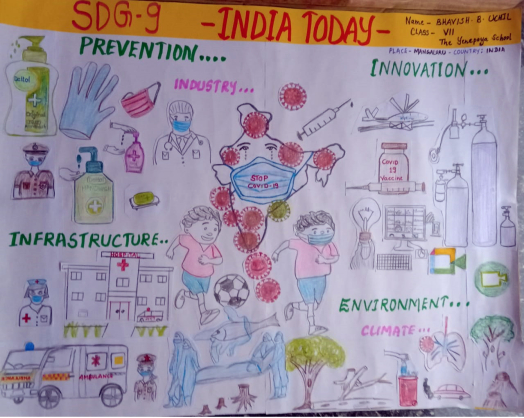 SDG-9 -INDIA TODAY-
Name- BHAVISH. B. UCHIL
CLASS- VII
The Yenepoya School
PLACE- MANGALURU - COUNTRY: INDIA
PREVENTION....
INNOVATION...
INDUSTRY...
Dettol
COVID
19
Vaccine
STOP
COVID-19
INFRASTRUCTURE..
HOSPITAL
ENVIRONMENT...
CLIMATE...
AMBULANCE